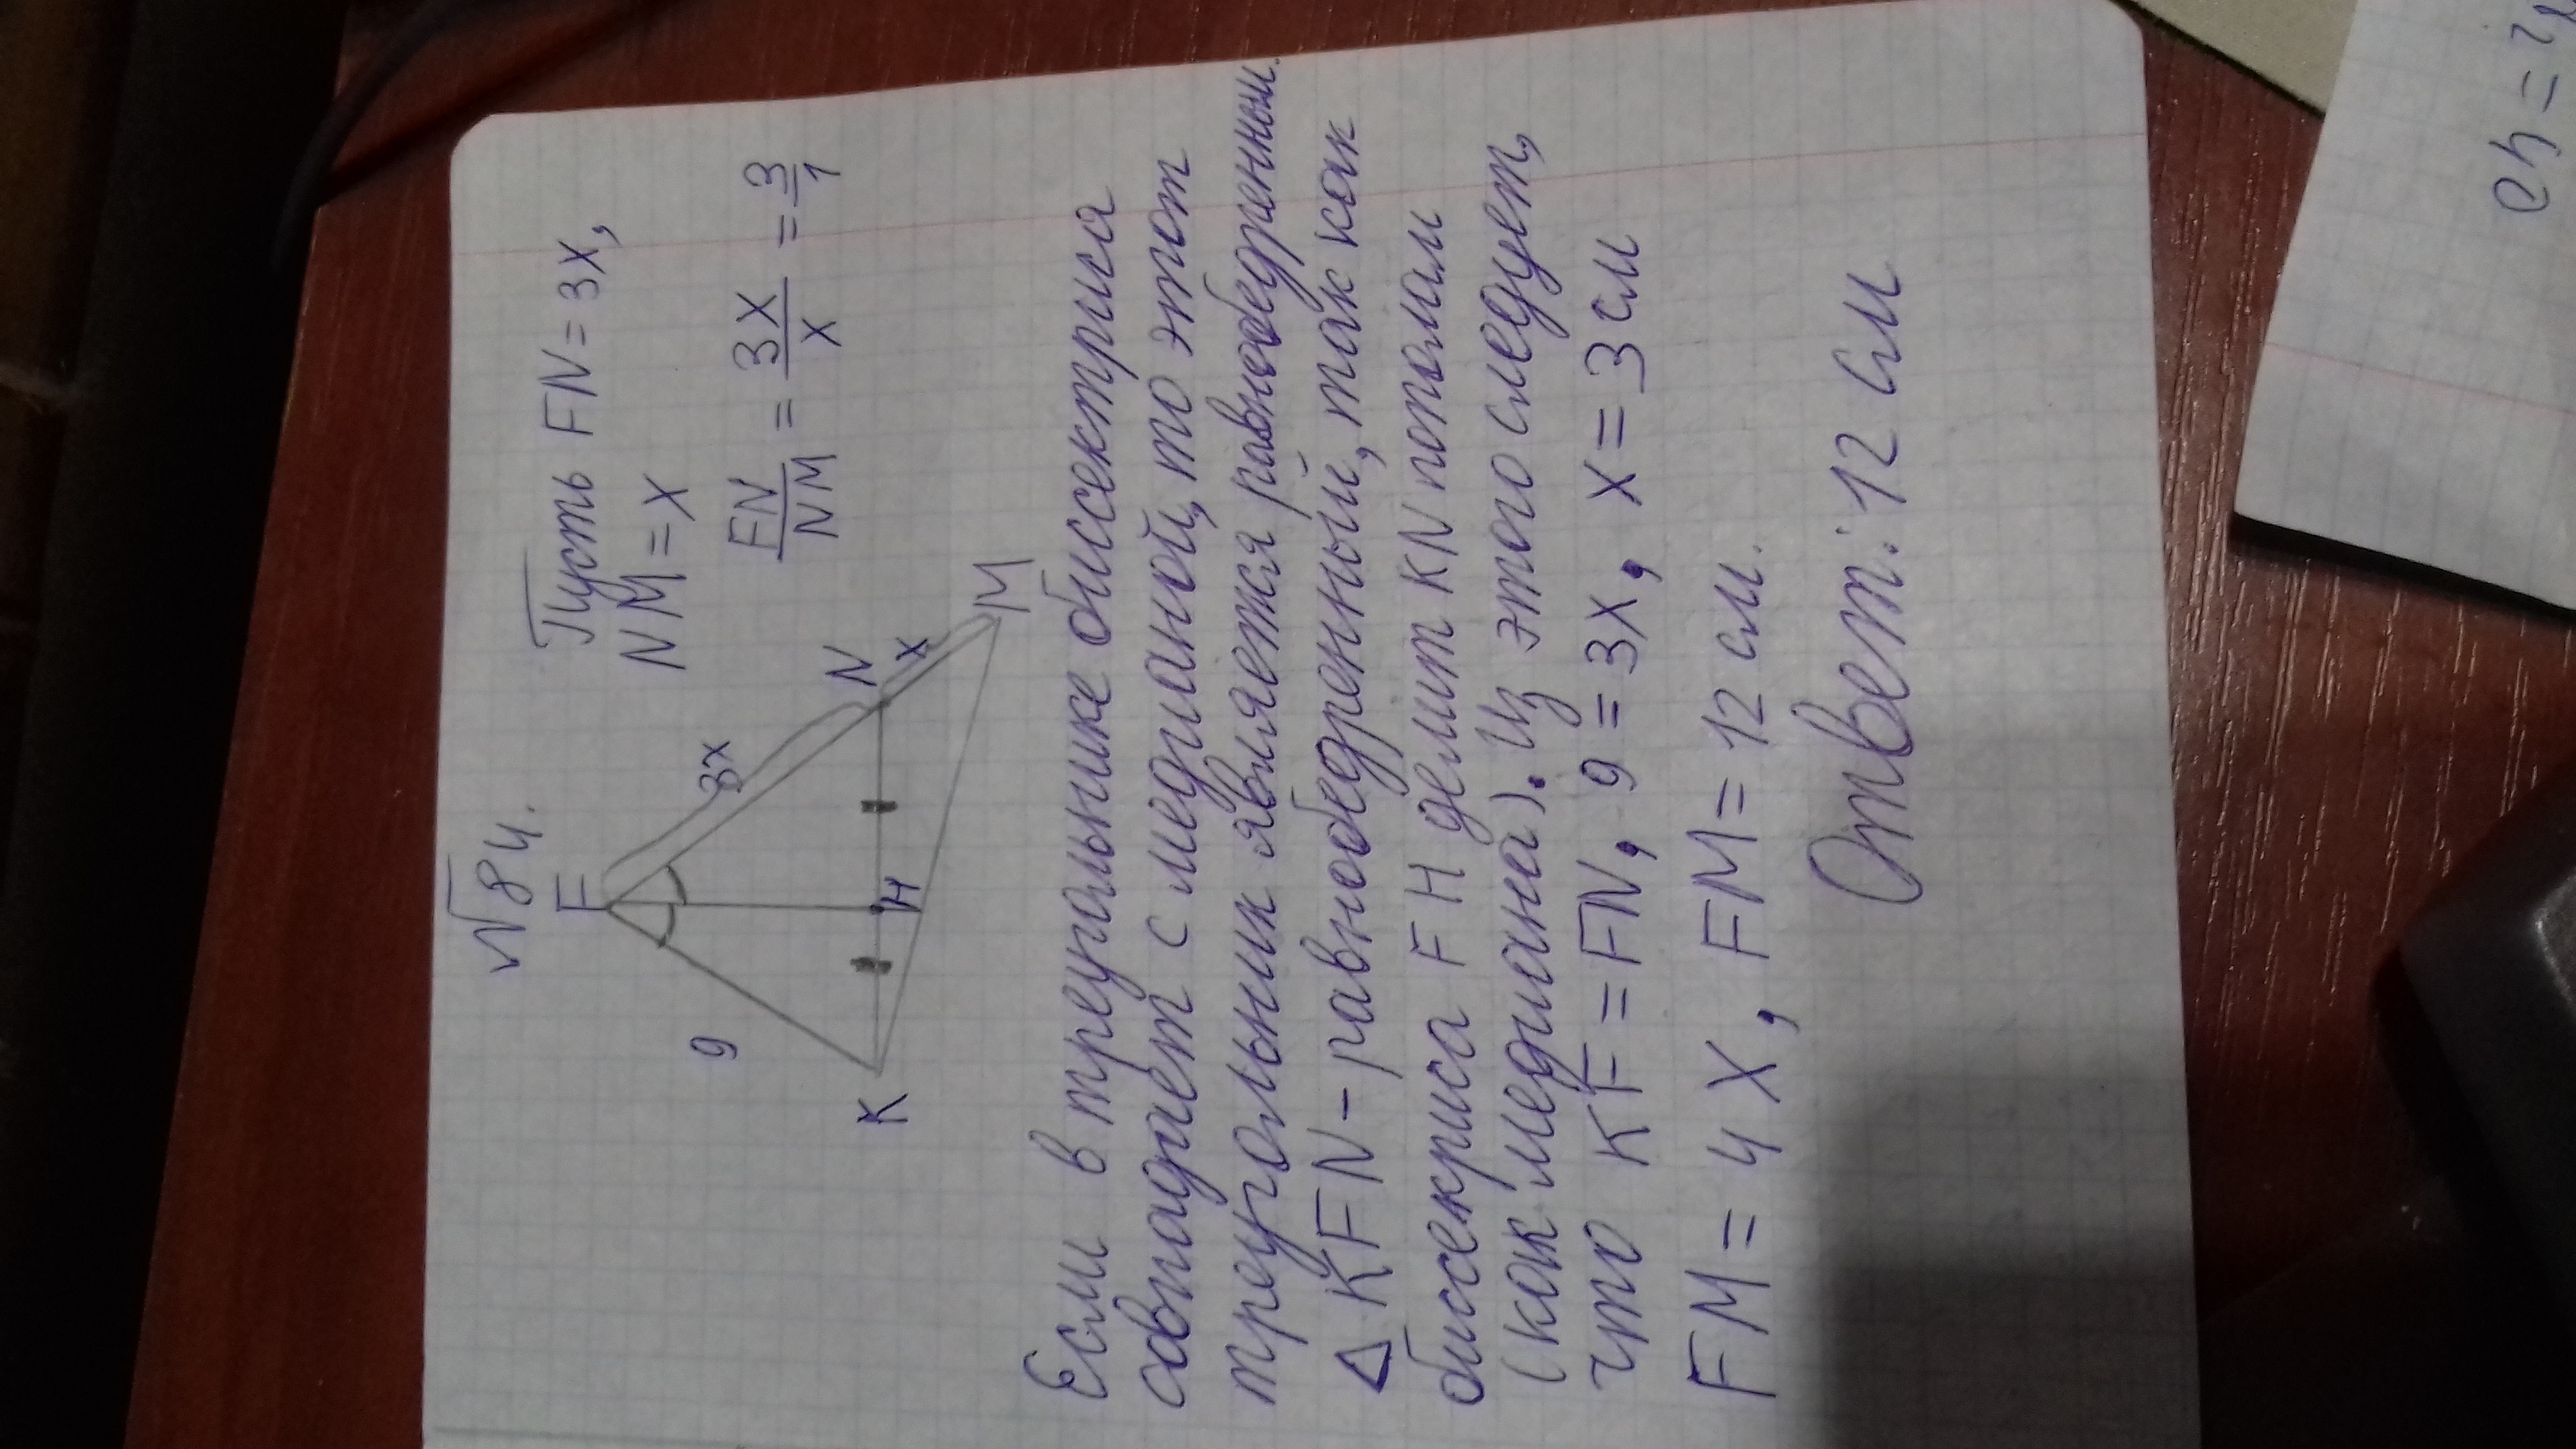 № 84.
F
Пусть FN = 3x,
NM = x
FN/NM = 3x/x = 3/1
9
3x
N
x
K
H
M
Если в треугольнике биссектриса
совпадает с медианой, то этот
треугольник является равнобедренным.
△ KFN - равнобедренный, так как
биссекриса FH делит KN попалам
(как медиана). Из этого следует,
что KF = FN, 9 = 3x, x = 3 см
FM = 4x, FM = 12 см.
Ответ: 12 см